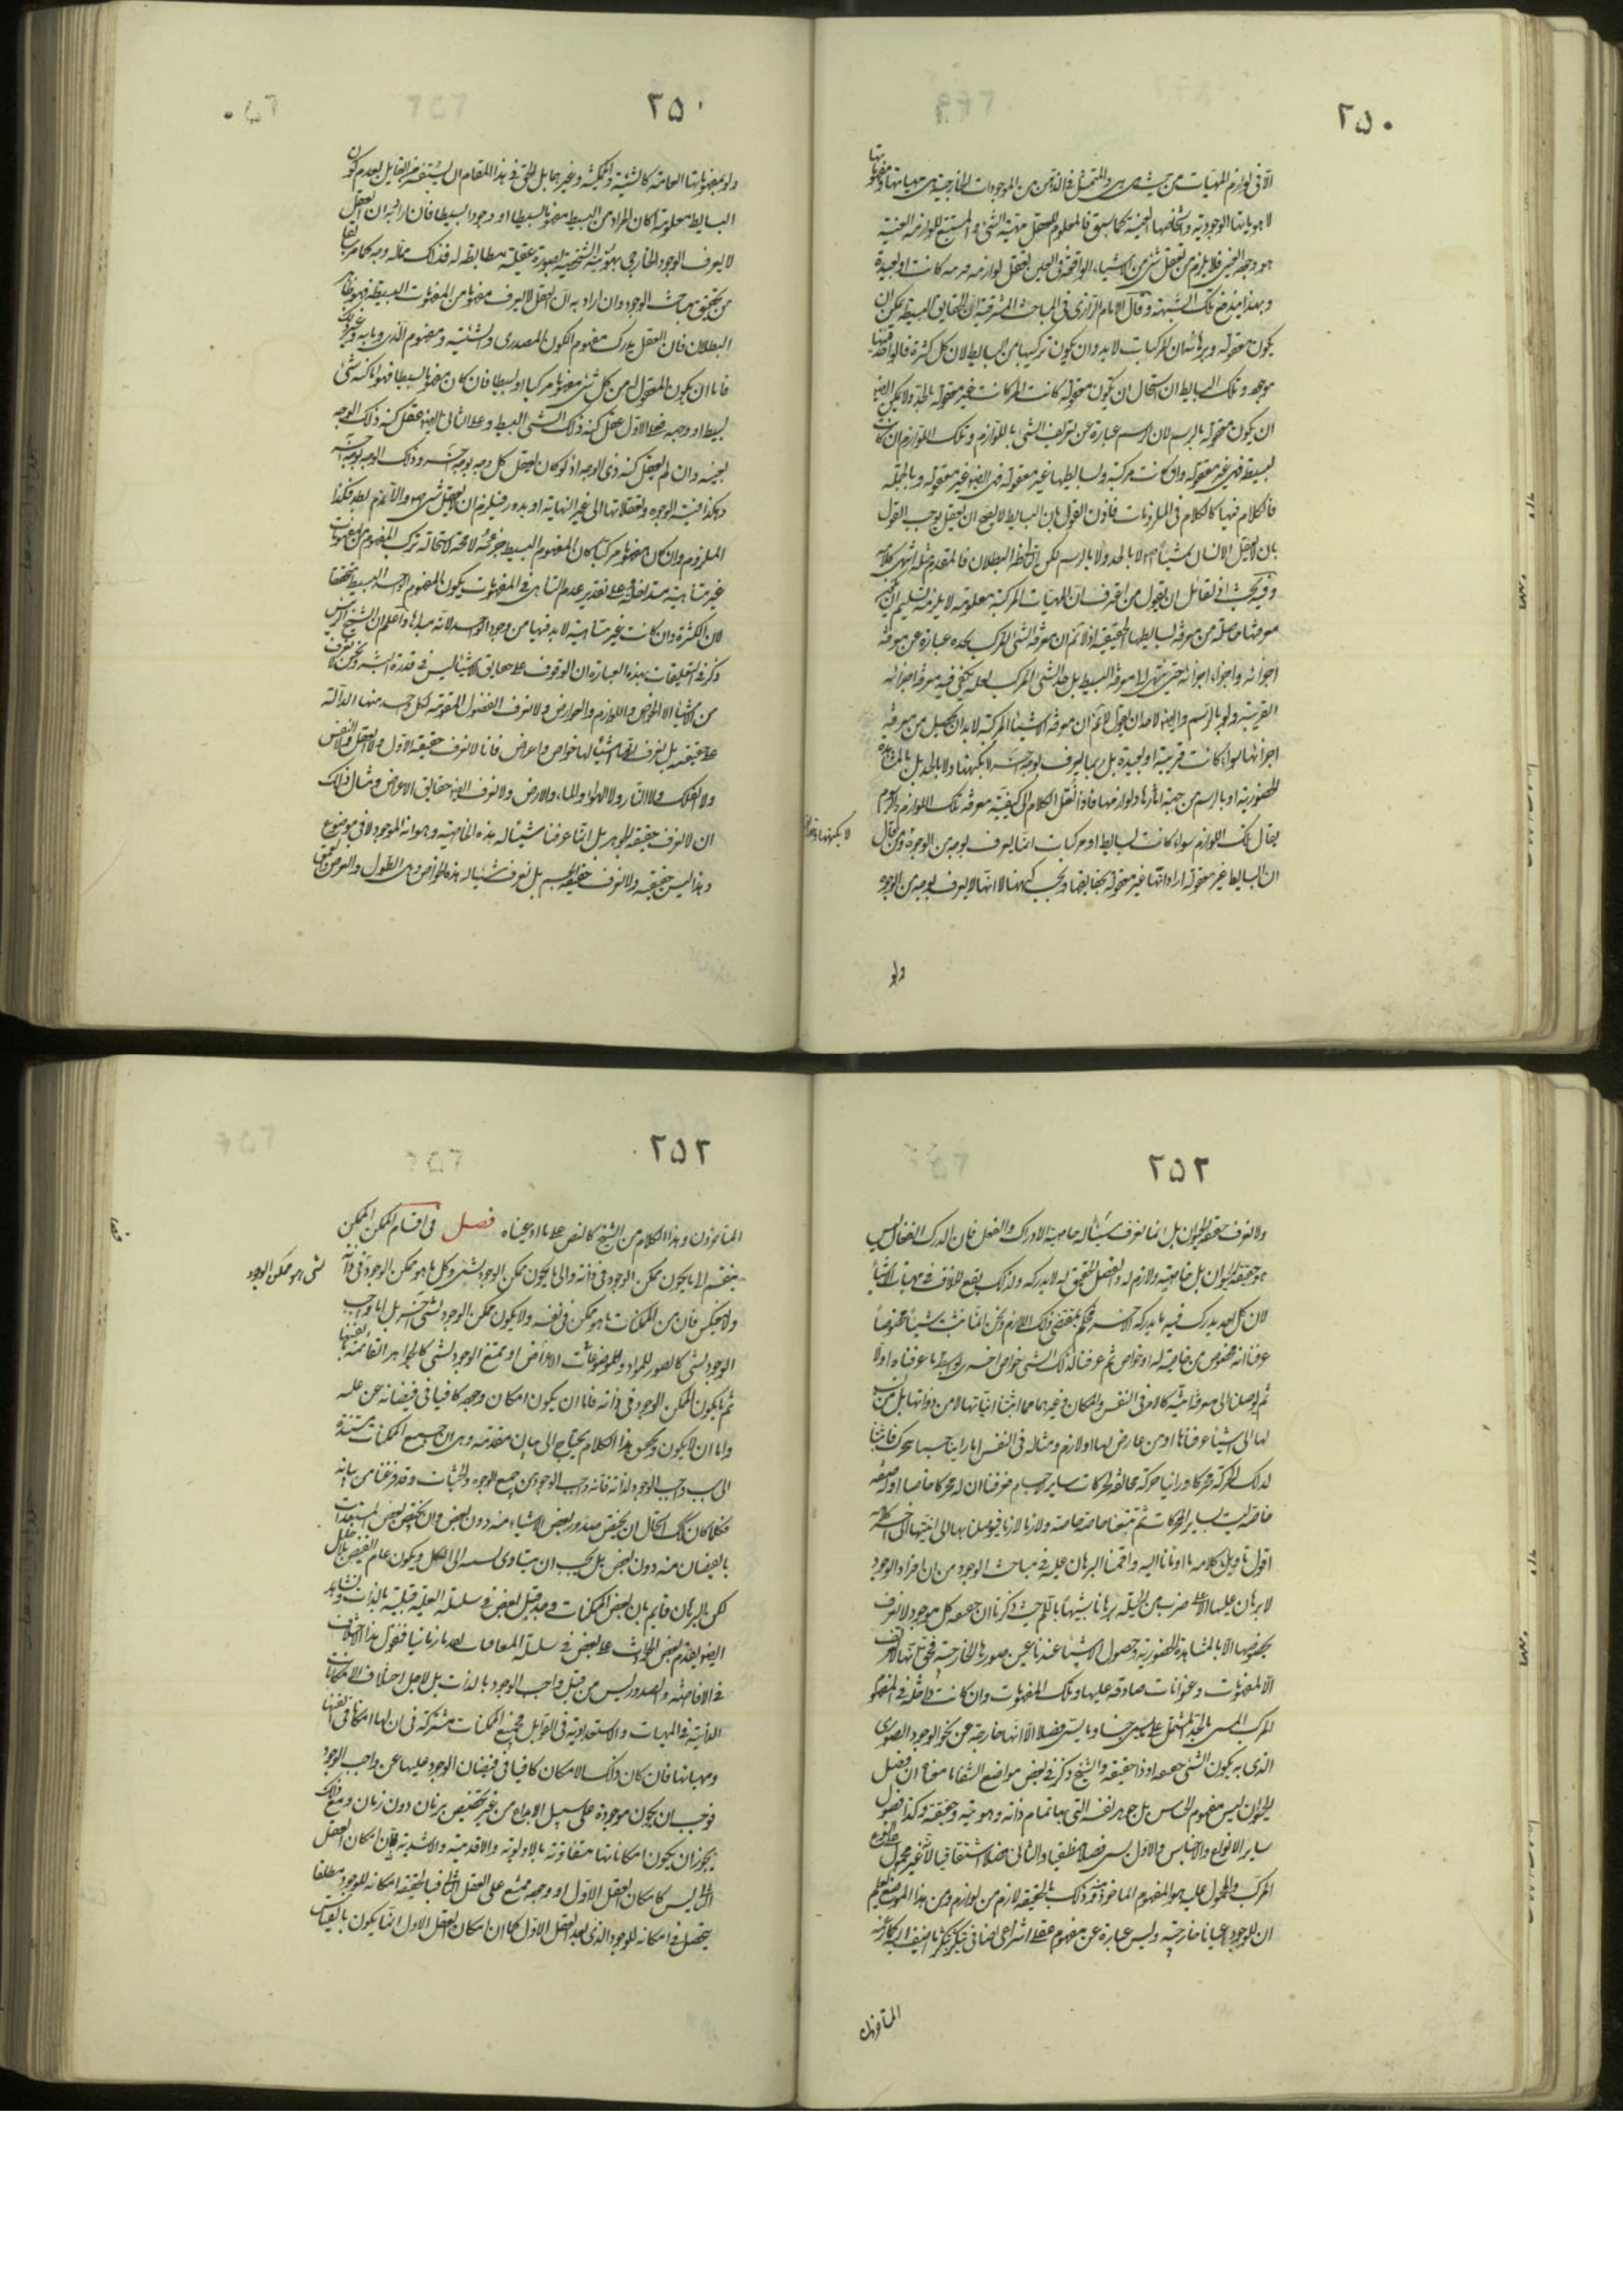 ٢٥٠
الا فی لوازم المهیات من حیث هی هی والمتمثل فی الذهن من الموجودات الخارجیة هی مهیاتها ومفهوماتها
لا هویاتها الوجودیة واشخاصها العینیة کما سبق فالمعلوم للعقل مهیة الشی والمستتبع للوازمه العینیة
هو وجوده العینی فلا یلزم من تعقل شی من الاشیاء الواقعة فی العین تعقل لوازمه قریبة کانت او بعیدة
وبهذا یندفع تلک الشبهة وقال الامام الرازی فی المباحث المشرقیة ان الحقایق البسیطة یمکن ان
یکون معقولة وبرهانه ان المرکبات لابد وان یکون ترکیبها من البسایط لان کل کثرة فالواحد فیها
موجود وتلک البسایط ان استحال ان یکون معقولة کانت المرکبات غیر معقولة بالحد ولا یمکن ایضا
ان یکون معقولة بالرسم لان الرسم عبارة عن تعریف الشی باللوازم وتلک اللوازم ان کانت
بسیطة فهی غیر معقولة وان کانت مرکبة وبسایطها غیر معقولة فهی ایضا غیر معقولة وبالجملة
فالکلام فیها کالکلام فی الملزومات فاذن القول بان البسایط لا یصح ان یعقل یوجب القول
بان لا یعقل الانسان شیئا اصلا لا بالحد ولا بالرسم لکن التالی ظاهر البطلان فالمقدم مثله انتهی کلامه
وفیه بحث اذ لقائل ان یقول من اعترف بان المهیات المرکبة معلومة لا یلزمه تسلیم ان یکون
معرفتها حاصلة من معرفة بسایطها الحقیقیة اذ لا نم ان معرفة الشی المرکب بحده عبارة عن معرفة
اجزائه واجزاء اجزائه حتی ینتهی الی معرفة البسیط بل حد الشی المرکب لعله یکفی فیه معرفة اجزائه
القریبة ولو بالرسم وایضا لاحد ان یقول لا نم ان معرفة الاشیاء المرکبة لابد ان یحصل من معرفة
اجزائها سواء کانت قریبة او بعیدة بل ربما یعرف بوجه آخر لا بکنهها ولا بالحد بل بالمشاهدة
الحضوریة او بالرسم من جهة اثارها ولوازمها فاذا نقل الکلام الی کیفیة معرفة تلک اللوازم
یقال تلک اللوازم سواء کانت بسایط او مرکبات انما یعرف بوجه من الوجوه ومن قال
لا بکنهها
ان البسایط غیر معقولة اراد انها غیر معقولة بحقایقها وبحسب کنهها لا انها لا یعرف بوجه من الوجوه
ولو
٢٥٠
ولو بمفهوماتها العامة کالشیئیة والممکنیة وغیرهما بل الحق فی هذا المقام ان یستفسر من القایل بعدم کون
البسایط معلومة أکان المراد من البسیط مفهوما بسیطا او وجودا بسیطا فان اراد به ان العقل
لا یعرف الوجود الخارجی بهویته الشخصیة بصورة عقلیة مطابقة له فذاک مما له وجه کما مر سابقا
من تحقیق مباحث الوجود وان اراد به ان العقل لا یعرف مفهوما من المفهومات البسیطة فهو ظاهر
البطلان فان العقل یدرک مفهوم الکون المصدری والشیئیة ومفهوم الذی وما به وغیر ذلک
فاما ان یکون المعقول له من کل شی مفهوما مرکبا او بسیطا فان کان مفهوما بسیطا فهو اما کنه شی
بسیط او وجهه فعلی الاول عقل کنه ذلک الشی البسیط وعلی الثانی ایضا عقل کنه ذلک الوجه
بعینه وان لم یعقل کنه ذی الوجه اذ لو کان تعقل کل وجه بوجه آخر وذلک الوجه بوجه آخر
وهکذا فیتسلسل الوجوه وتعقلاتها الی غیر النهایة او یدور فیلزم ان لا یعقل شی اصلا واللازم بط فکذا
الملزوم وان کان مفهوما مرکبا کان المفهوم البسیط جزءه لا محالة لاستحالة ترکب المفهوم من مفهومات
غیر متناهیة متداخلة وعلی تقدیر عدم التناهی فی المفهومات یکون المفهوم الواحد البسیط متحققا
لان الکثرة وان کانت غیر متناهیة لابد فیها من وجود الواحد لانه مبداها واعلم ان الشیخ الرئیس
ذکر فی التعلیقات بهذه العبارة ان الوقوف علی حقایق الاشیاء لیس فی قدرة البشر ونحن لا نعرف
من الاشیاء الا الخواص واللوازم والعوارض ولا نعرف الفصول المقومة لکل واحد منها الدالة
علی حقیقته بل نعرف انها اشیاء لها خواص واعراض فانا لا نعرف حقیقة الاول ولا العقل ولا النفس
ولا الفلک ولا النار ولا الهواء والماء والارض ولا نعرف ایضا حقایق الاعراض ومثال ذلک
ان لا نعرف حقیقة الجوهر بل انما عرفنا شیئا له هذه الخاصیة وهو انه الموجود لا فی موضوع
وهذا لیس حقیقته ولا نعرف حقیقة الجسم بل نعرف شیئا له هذه الخواص وهی الطول والعرض والعمق
٢٥٢
ولا نعرف حقیقة الحیوان بل انما نعرف شیئا له خاصیة الادراک والفعل فان المدرک الفعال لیس
هو حقیقة الحیوان بل خاصیته ولازم له والفصل الحقیقی له لا ندرکه ولذلک یقع الخلاف فی مهیات الاشیاء
لان کل احد یدرک فیه ما یدرکه الآخر فحکم بمقتضی ذلک اللازم ونحن انما نثبت شیئا مخصوصا
عرفنا انه مخصوص من خاصیة له او خواص ثم عرفنا لذلک الشی خواص اخری بواسطة ما عرفناه اولا
ثم توصلنا الی معرفة انیته کالامر فی النفس والمکان وغیرهما مما اثبتنا انیاتها لا من ذواتها بل من نسب
لها الی اشیاء عرفناها او من عارض لها او لازم ومثاله فی النفس انا راینا جسما یتحرک فاثبتنا
لذلک الحرکة محرکا وراینا حرکة مخالفة لحرکات سایر الاجسام فعرفنا ان له محرکا خاصا او له صفة
خاصة لیست لسایر المحرکات ثم تتبعنا خاصة خاصة ولازما لازما فتوصلنا بها الی انیتها الی آخر کلامه
اقول تاویل کلامه ما اومانا الیه واقمنا البرهان علیه فی مباحث الوجود من ان افراد الوجود
لا برهان علیها الا علی ضرب من الحیلة برهانا شبیها باللم حیث ذکرنا ان حقیقة کل موجود لا تعرف
بخصوصها الا بالمشاهدة الحضوریة وحصول الاشیاء عندنا غیر صورها الخارجیة فحق انها لا تعرف
الا بمفهومات وعنوانات صادقة علیها وتلک المفهومات وان کانت داخلة فی المفهوم
المرکب المسمی بالحد المشتمل علی ما یسمی جنسا وما یسمی فصلا الا انها خارجة عن نحو الوجود الصوری
الذی به یکون الشی حقیقة او ذا حقیقة والشیخ ذکر فی بعض مواضع الشفاء ما معناه ان فصل
الحیوان لیس مفهوم الحساس بل جوهر نفسه التی بها تمام ذاته وهویته وحقیقته وکذا فصول
سایر الانواع والاجناس والاول یسمی فصلا منطقیا والثانی فصلا اشتقاقیا لانه غیر محمول علی النوع
المرکب والمحمول علیه هو المفهوم الماخوذ منه وذلک بالحقیقة لازم من لوازمه ومن هذا الموضع یعلم
ان للوجود اعیانا خارجیة ولیس عبارة عن مفهوم عقلی انتزاعی اضافی یتکثر بتکثر ما اضیف الیه کما زعمه
المتاخرون
٢٥٢
المتاخرون وهذا الکلام من الشیخ کالنص علی ما ادعیناه فصل فی اقسام الممکن الممکن
ینقسم الی ما یکون ممکن الوجود فی ذاته والی ما یکون ممکن الوجود لشی وکل ما هو ممکن الوجود فی ذاته
لشی هو ممکن الوجود
ولا ینعکس فان من الممکنات ما هو ممکن فی نفسه ولا یکون ممکن الوجود لشی آخر بل اما واجب
الوجود لشی کالصور للمواد والموضوعات للاعراض او ممتنع الوجود لشی کالجواهر القائمة بانفسها
ثم ما یکون الممکن الوجود فی ذاته فاما ان یکون امکان وجوده کافیا فی فیضانه عن علته
واما ان لا یکون وتحقیق هذا الکلام یحتاج الی بیان مقدمة وهی ان جمیع الممکنات مستندة
الی سبب واجب الوجود لذاته فانه واجب الوجود من جمیع الوجوه والحیثیات وقد فرغنا من بیانه
فکلما کان کذلک استحال ان یختص صدور بعض الاشیاء منه دون بعض وان یختص بعض المستعدات
بالفیضان منه دون البعض بل یجب ان یتساوی نسبته الی الکل ویکون عام الفیض بلا خلل
لکن البرهان قایم بان بعض الممکنات وجد قبل بعض فی سلسلة العلیة قبلیة بالذات ونشاهد
ایضا تقدم بعض الحوادث علی بعض فی سلسلة المعدات تقدما زمانیا فنقول هذا الاختلاف
فی الافاضة والصدور لیس من قبل واجب الوجود بالذات بل لاجل اختلاف الامکانات
الذاتیة فی المهیات والاستعدادیة فی القوابل فجمیع الممکنات مشترکة فی ان لها امکانا فی انفسها
ومهیاتها فان کان ذلک الامکان کافیا فی فیضان الوجود علیها عن واجب الوجود
فوجب ان یکون موجودة علی سبیل الابداع من غیر تخصیص بزمان دون زمان ومع ذلک
یجوز ان یکون امکاناتها متفاوتة بالاولویة والاقدمیة والاشدیة فان امکان العقل
الثانی لیس کامکان العقل الاول او وجوده ممتنع علی العقل الثانی فبالحقیقة امکانه للوجود مطلقا
یتحصل فی امکانه للوجود الذی بعد العقل الاول کما ان امکان العقل الاول انما یکون بالقیاس